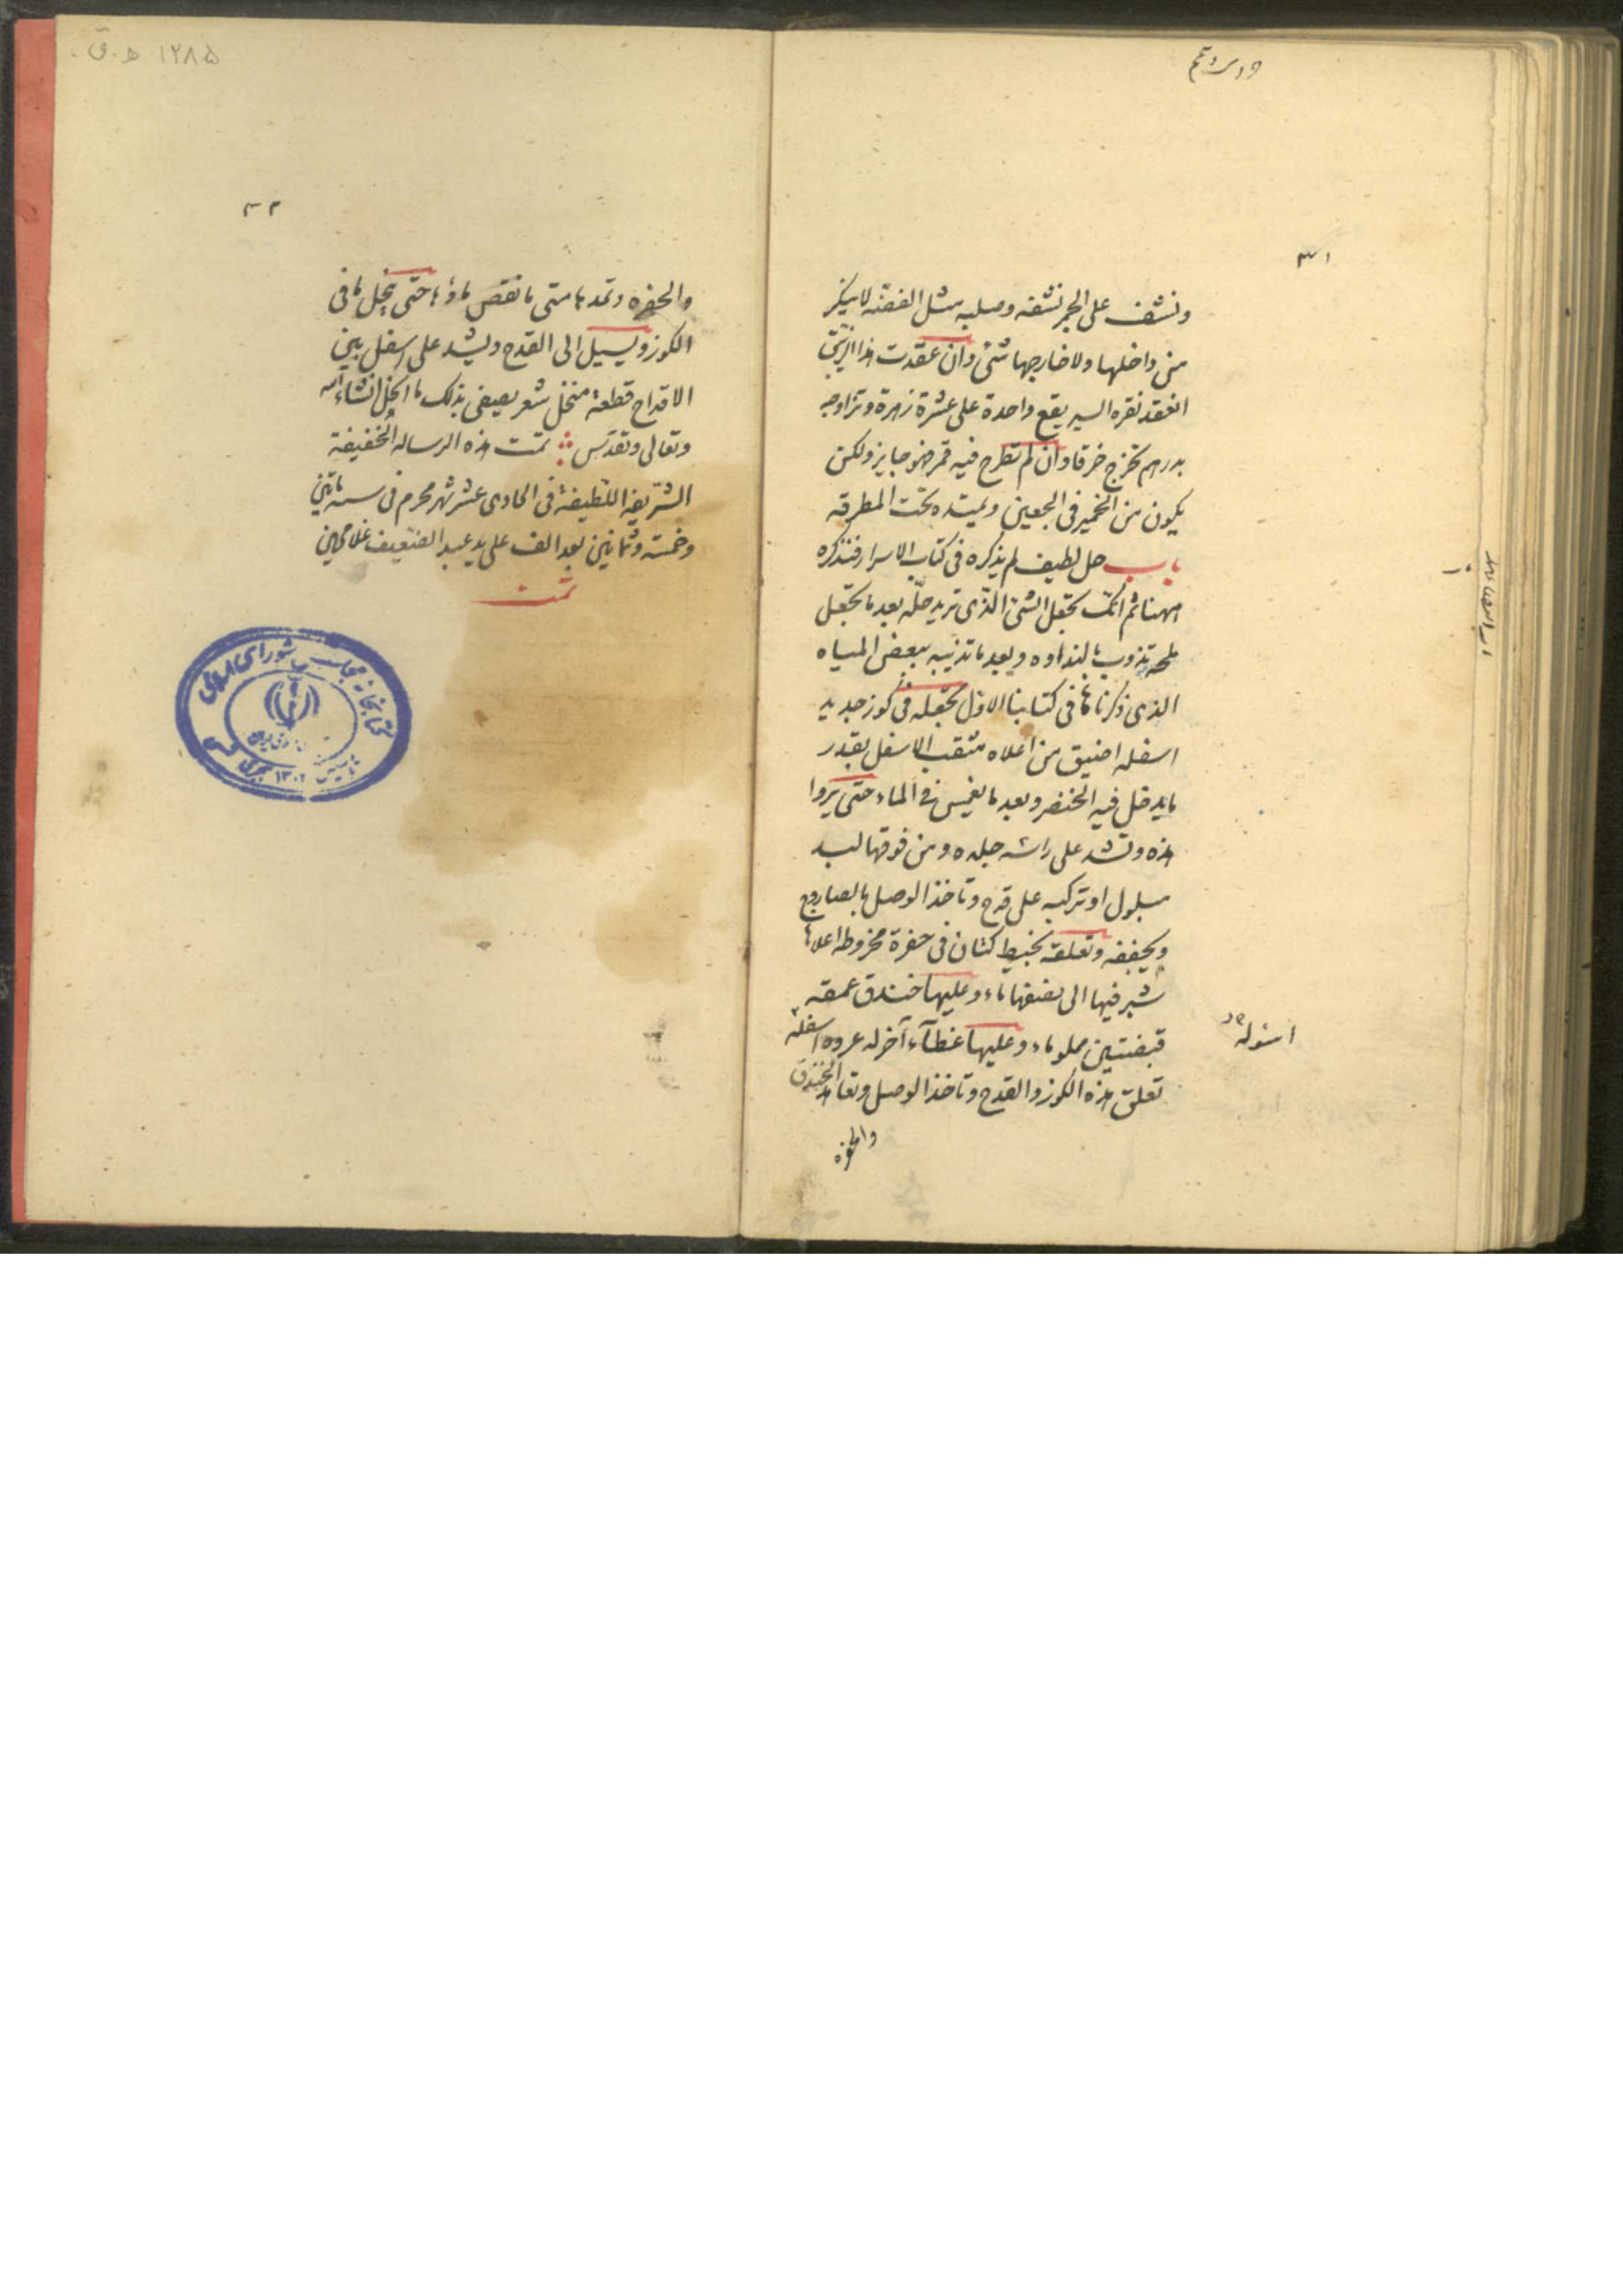 ٣١
ونشف على الجمر نشفه وصلبه مثل الفضة لا ينكر
من داخلها ولا خارجها شئ وان عقدت هذا الزيبق
انعقد نقره اليسير يقع واحدة على عشرة زهرة وتزاوجه
بدرهم تخرج خرقا وان لم تطرح فيه قمر فهو جايز ولكن
يكون من الخمير فى العجين ويمتد تحت المطرقة
باب حل لطيف لم يذكره فى كتاب الاسرار فنذكره
ههنا ثم انك تجعل الشئ الذى تريد حلّه بعد ما تجعل
ملحه تذوب بالنداوه وبعد ما تذيبه ببعض المياه
الذى ذكرناها فى كتابنا الاول تجعله فى كوز جديد
اسفله اضيق من اعلاه مثقب الاسفل بقدر
ما يدخل فيه الخنصر وبعد ما تغمس فى الماء حتى يروا
هذه وتشد على راسه جلده ومن فوقها لبد
مبلول او تركبه على قدح وتاخذ الوصل بالصاروج
ويجففه وتعلقه بخيط كتان فى حفرة مخروطه اعلاها
شبر فيها الى نصفها ماء وعليها خندق عمقه
قبضتين مملو ماء وعليها غطآء آخر له عروه اسفله
تعلق هذه الكوز والقدح وتاخذ الوصل وتعاهد الخندق
والحفره
٣٢
والحفره وتمدها متى ما نقص ماؤها حتى ينحل ما فى
الكوز ويسيل الى القدح ويشد على اسفل بين
الاقداح قطعة منخل شعر يصيفى بذلك ما انحل انشاء الله
وتعالى وتقدس تمت هذه الرساله الخفيفة
الشريفة اللطيفة فى الحادى عشر شهر محرم فى سنه ماتين
وخمسه وثمانين بعد الف على يد عبد الضعيف غلامحسين
تمت
١٢٨٥ ه‍.ق.
كتابخانه مجلس شوراى اسلامى